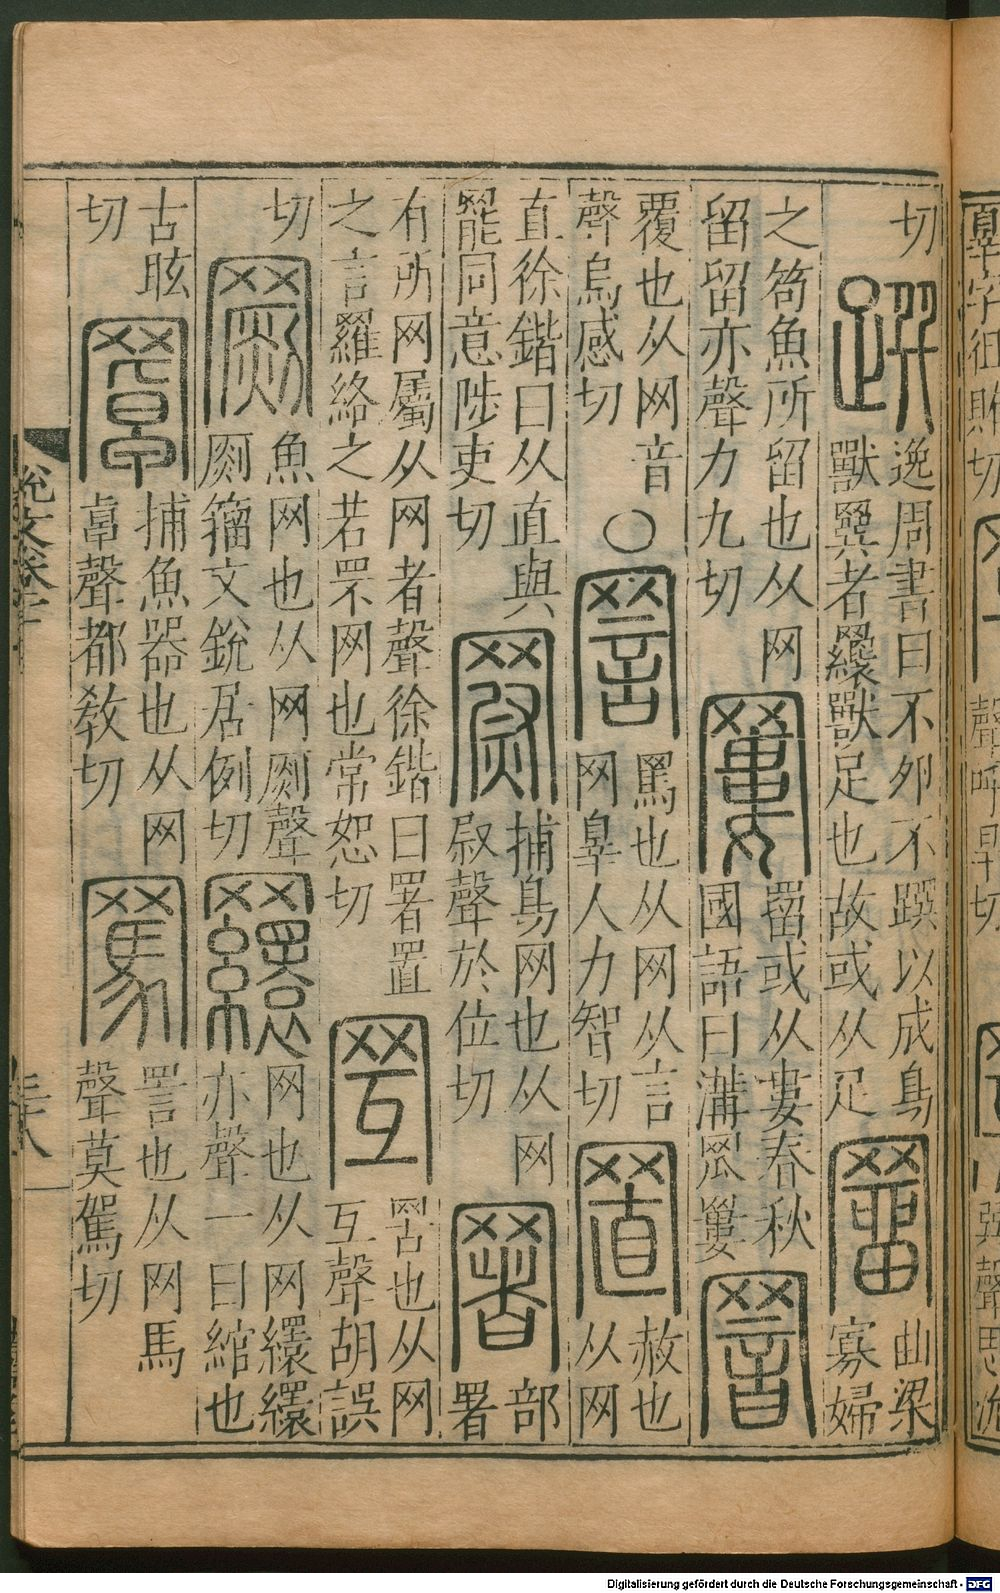 切
𨅬
逸周書曰不夘不蹼以成鳥
獸䍷者䍷獸足也故或从足
罶
曲梁
寡婦
之笱魚所留也从网
留留亦聲力九切
䍣
罶或从婁春秋
國語曰溝罛䍣
罯
覆也从网音
聲烏感切
○
詈
罵也从网从言
网辠人力智切
置
赦也
从网
直徐鍇曰从直與
罷同意陟吏切
罻
捕鳥网也从网
㷉聲於位切
署
部
署
有所网屬从网者聲徐鍇曰署置
之言羅絡之若罘网也常恕切
罟也从网
互聲胡誤
切
罽
魚网也从网𠪚聲
𠪚籀文銳居例切
网也从网繯繯
亦聲一曰綰也
古眩
切
罩
捕魚器也从网
聲都敎切
罵
詈也从网馬
聲莫駕切
三十八
Digitalisierung gefördert durch die Deutsche Forschungsgemeinschaft - DFG